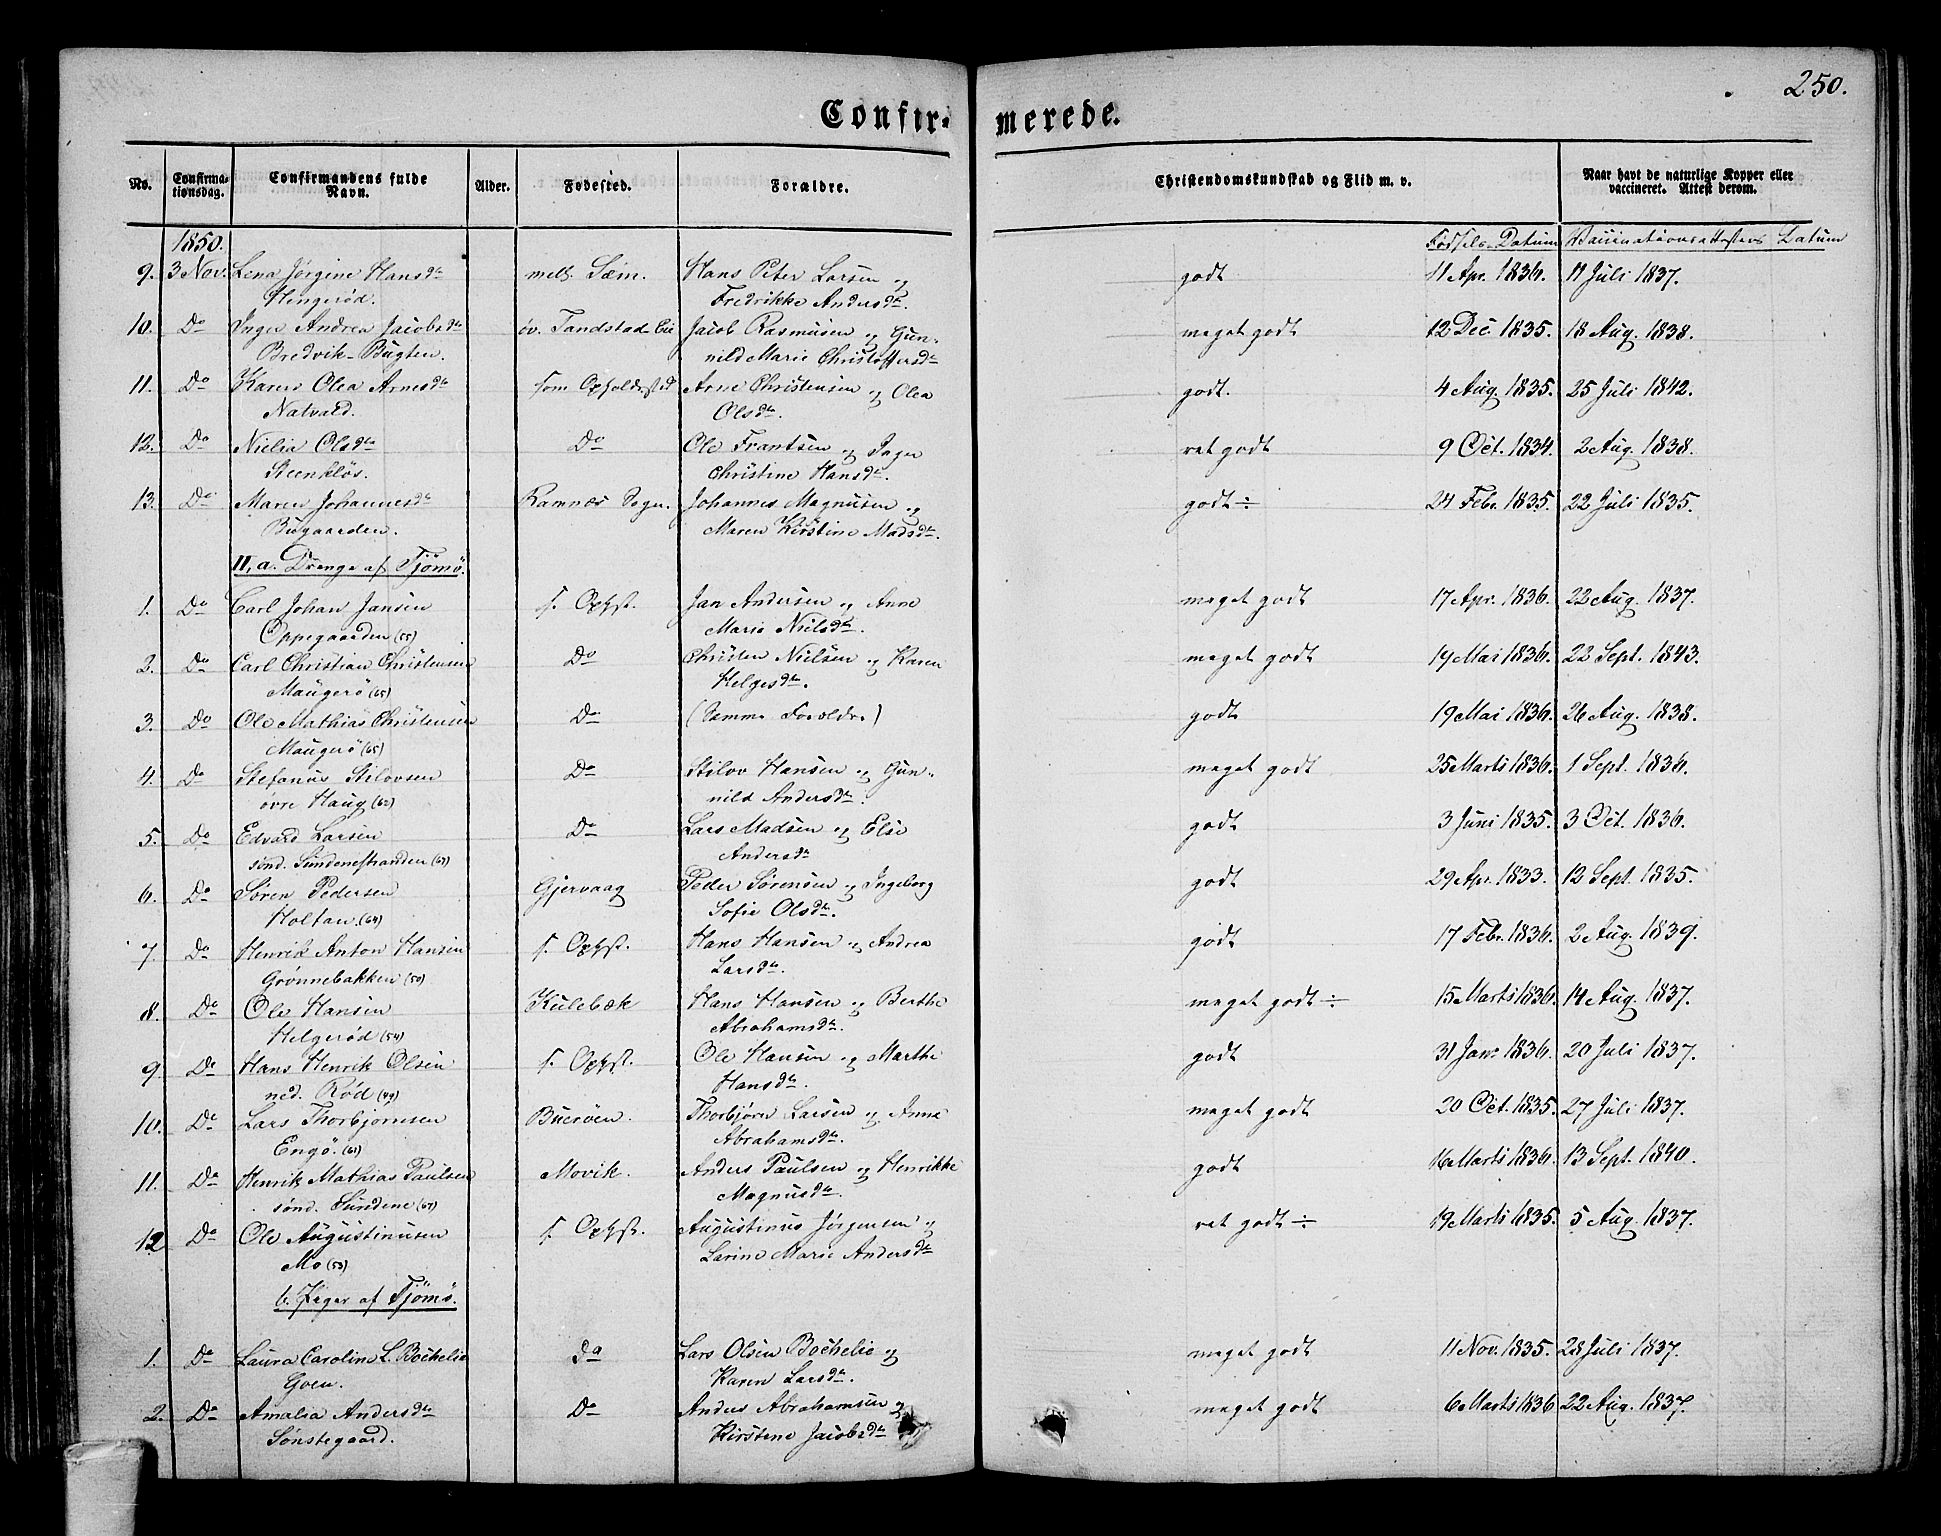 250.
Confir-merede.
No. Confirmationsdag. Confirmandens fulde Navn. Alder. Fødested. Forældre. Christendomskundskab og Flid m. v. Naar havt de naturlige Kopper eller vaccineret. Attest derom.
1850. Fødsels-Datum Vaccinationsattestens Datum
9. 3 Nov. Lena Jørgine Hansdtr mell. Sæm. Hans Peter Larsen og godt 11 Apr. 1836. 11 Juli 1837.
Hengerød. Fredrikke Andersdtr.
10. Do Inger Andrea Jacobsdtr øv. Tandstad-Eie Jacob Rasmusen og Gun- meget godt 12 Dec. 1835. 18 Aug. 1838.
Bredvik-Bugten. nild Marie Christoffersdtr
11. Do Karen Olea Arnesdtr som Opholdssted Arne Christensen og Olea godt. 4 Aug. 1835. 25 Juli 1842.
Natvald. Olsdtr.
12. Do Nielia Olsdtr Do Ole Frantsen og Inger ret godt 9 Oct. 1834. 2 Aug. 1838.
Steenkløs. Christine Hansdtr.
13. Do Maren Johannesdtr Ramnæs Sogn. Johannes Magnusen og godt ÷ 24 Febr. 1835. 22 Juli 1835.
Bugaarden. Maren Kirstine Madsdtr.
II, a. Drenge af Tjømø.
1. Do Carl Johan Jansen s. Ophst. Jan Andersen og Anne meget godt 17 Apr. 1836. 22 Aug. 1837.
Oppegaarden (55) Marie Nielsdtr.
2. Do Carl Christian Christensen Do Christen Nielsen og Karen meget godt 14 Mai 1836. 22 Sept. 1843.
Maugerø (65) Helgesdtr.
3. Do Ole Mathias Christensen Do (Samme Forældre) godt 19 Mai 1836. 26 Aug. 1838.
Maugerø (65)
4. Do Stefanus Stilovsen Do Stilov Hansen og Gun- meget godt 25 Marts 1836. 1 Sept. 1836.
øvre Haug (62) nild Andersdtr.
5. Do Edvard Larsen Do Lars Madsen og Else godt 3 Juni 1835. 3 Oct. 1836.
sønd. Sundenestranden (67) Andersdtr
6. Do Søren Pedersen Gjervaag Peder Sørensen og Ingeborg godt 29 Apr. 1833. 12 Sept. 1835.
Holtan (64) Sofie Olsdtr.
7. Do Henrik Anton Hansen s. Ophst. Hans Hansen og Andrea godt 17 Febr. 1836. 2 Aug. 1839.
Grønnebakken (50) Larsdtr.
8. Do Ole Hansen Kulebæk Hans Hansen og Berthe meget godt ÷ 15 Marts 1836. 14 Aug. 1837.
Helgerød (54) Abrahamsdtr.
9. Do Hans Henrik Olsen s. Ophst. Ole Hansen og Marthe godt 31 Jan. 1836. 20 Juli 1837.
ned. Rød (49) Hansdtr.
10. Do Lars Thorbjørnsen Buerøen. Thorbjørn Larsen og Anna meget godt 20 Oct. 1835. 27 Juli 1837.
Engø. (61) Abrahamsdtr.
11. Do Henrik Mathias Paulsen Movik. Anders Paulsen og Henrikke godt 16 Marts 1836. 13 Sept. 1840.
sønd. Sundene (67) Magnusdtr.
12 Do Ole Augustinusen s. Ophst. Augustinus Jørgensen og ret godt ÷ 19 Marts 1835. 5 Aug. 1837.
Mo (53) Larine Marie Andersdtr
b. Piger af Tjømø.
1. Do Laura Caroline L. Bochelie Do Lars Olsen Bochelie og meget godt 11 Nov. 1835. 28 Juli 1837.
Goen. Karen Larsdtr.
2. Do Amalia Andersdtr Do Anders Abrahamsen og meget godt 6 Marts 1836 22 Aug. 1837.
Sønstegaard. Kirstene Jacobsdtr